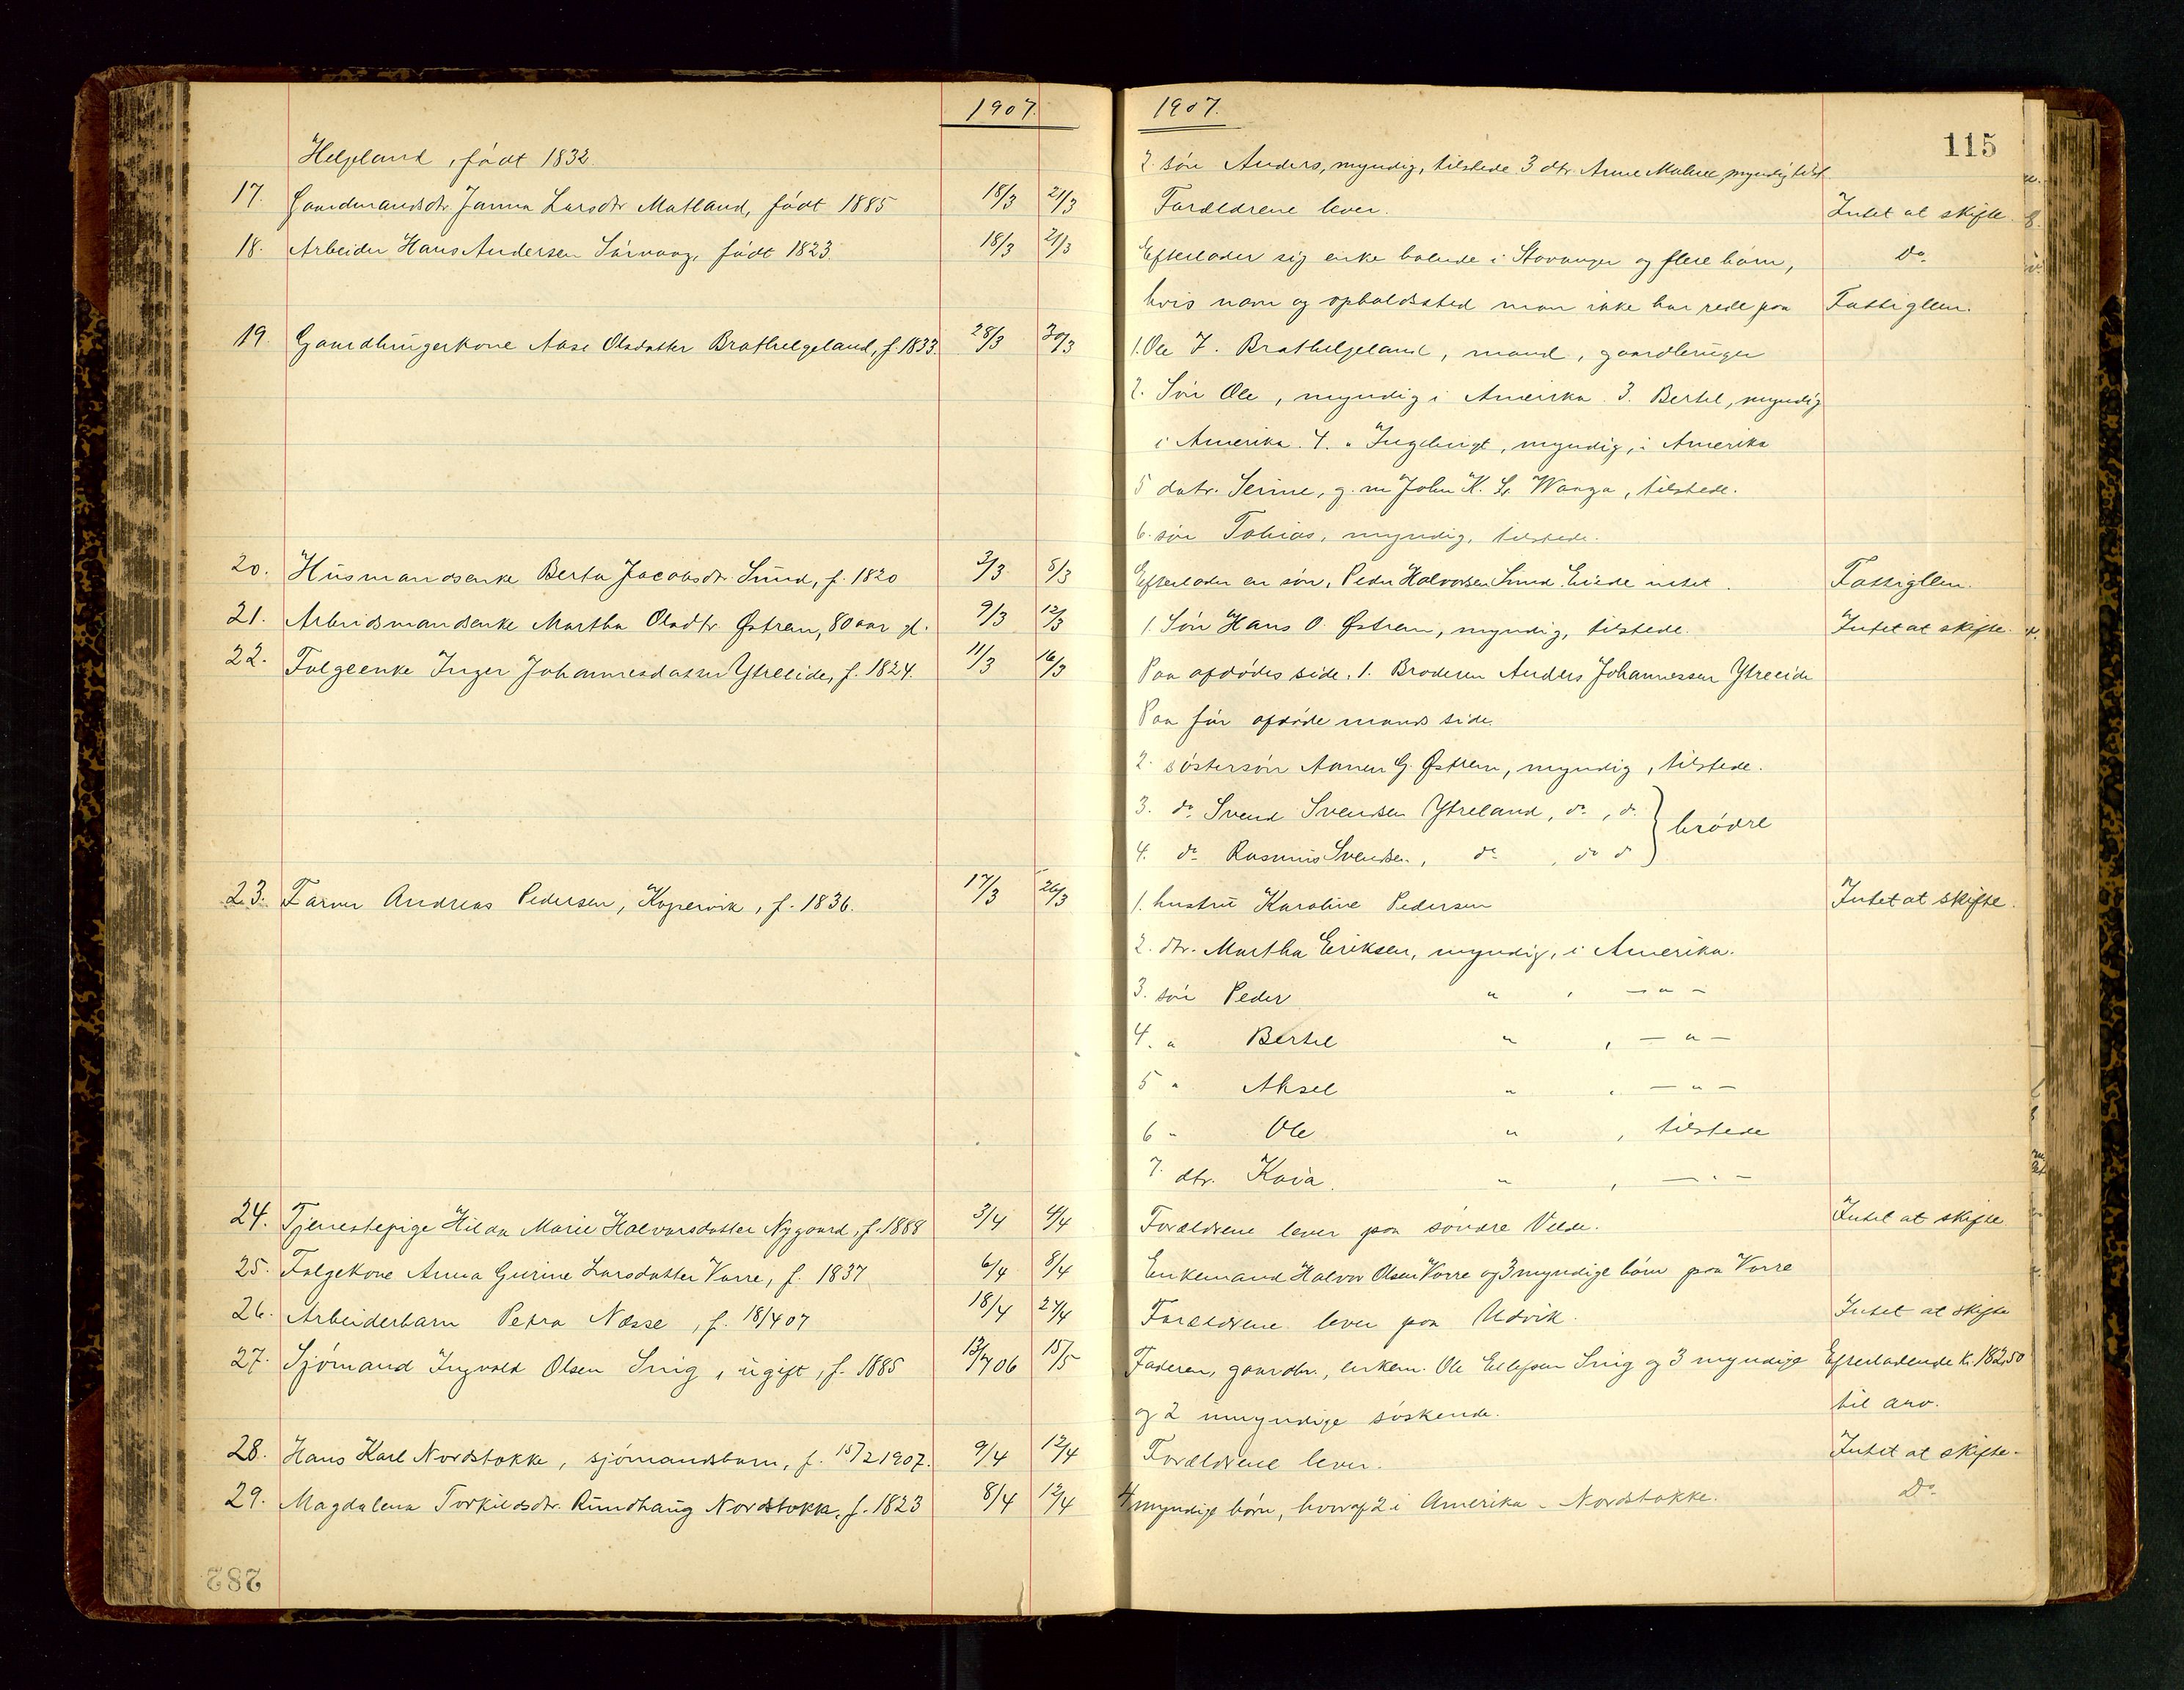 1907.
1907.
115
Helgeland, født 1832
2. søn Anders, myndig, tilstede 3 dtr. Anne Malene, myndig, tilst.
17. Gaardmandsdtr. Janna Larsdtr Matland, født 1885 18/3 21/3 Forældrene lever. Intet at skifte.
18. Arbeider Hans Andersen Sørvaag, født 1823. 18/3 21/3 Efterlader sig enke boende i Stavanger og flere børn, Do
hvis navn og opholdssted man ikke har rede paa Fattiglem.
19. Gaardbrugerkone Aase Olsdatter Brathelgeland, f. 1833. 28/3 30/3 1. Ole T. Brathelgeland, mand, gaardbruger
2. Søn Ole, myndig i Amerika. 3. Bertel, myndig
i Amerika. 4. " Ingebrigt, myndig, i Amerika
5 datr. Serine, g. m John K. L. Waaga, tilstede.
6. søn Tobias, myndig, tilstede.
20. Husmandsenke Berta Jacobsdtr. Sund, f. 1820 3/3 8/3 Efterlader en søn, Peder Halvorsen Sund. Eiede intet. Fattiglem.
21. Arbeidsmandsenke Martha Olsdtr. Østrem, 80 aar gl. 9/3 12/3 1. Søn Hans O. Østrem, myndig, tilstede. Intet at skifte.
22. Følgeenke Inger Johannesdatter Ytreeide, f. 1824. 11/3 16/3 Paa afdødes side. 1. Broderen Anders Johannessen Ytreeide
Paa før afdøde mands side.
2. søstersøn Aanen G. Østrem, myndig, tilstede.
3. do Svend Svendsen Ytreland, do, do } brødre
4. do Rasmus Svendsen, do, do do
23. Farver Andreas Pedersen, Kopervik, f. 1836. 17/3 26/3 1. hustru Karoline Pedersen Intet at skifte.
2. dtr. Martha Eriksen, myndig, i Amerika.
3. søn Peder " , — " —
4. " Bertel " , — " —
5 " Aksel " , — " —
6 " Ole " , tilstede
7. dtr. Kaia. " , — " —
24. Tjenestepige Hilda Marie Halvorsdatter Nygaard, f. 1888 3/4 4/4 Forældrene lever paa søndre Velde. Intet at skifte
25. Følgekone Anna Gurine Larsdatter Vorre, f. 1837 6/4 8/4 Enkemand Halvor Olsen Vorre og 3 myndige børn paa Vorre
26. Arbeiderbarn Petra Næsse, f. 18/4 07 18/4 24/4 Forældrene lever paa Udvik. Intet at skifte
27. Sjømand Ingvald Olsen Snig, ugift, f. 1885 13/7 06 15/5 Faderen, gaardbr., enkem. Ole Ellefsen Snig og 3 myndige Efterladende K. 182,50
og 2 umyndige søskende. til arv.
28. Hans Karl Nordstokke, sjømandsbarn, f. 15/2 1907. 9/4 12/4 Forældrene lever. Intet at skifte.
29. Magdalena Torkildsdtr. Rundhaug Nordstokke, f. 1823 8/4 12/4 4 myndige børn, hvoraf 2 i Amerika - Nordstokke. Do
282